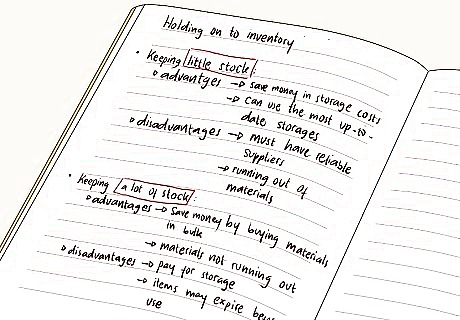 Holding on to inventory
• Keeping little stock:
◦ advantges → save money in storage costs
→ can use the most up-to-
date storages
◦ disadvantages → must have reliable
suppliers
→ running out of
materials
• Keeping a lot of stock:
◦ advantages → save money by buying materials
in bulk
→ materials not running out
◦ disadvantages → pay for storage
→ items may expire
use